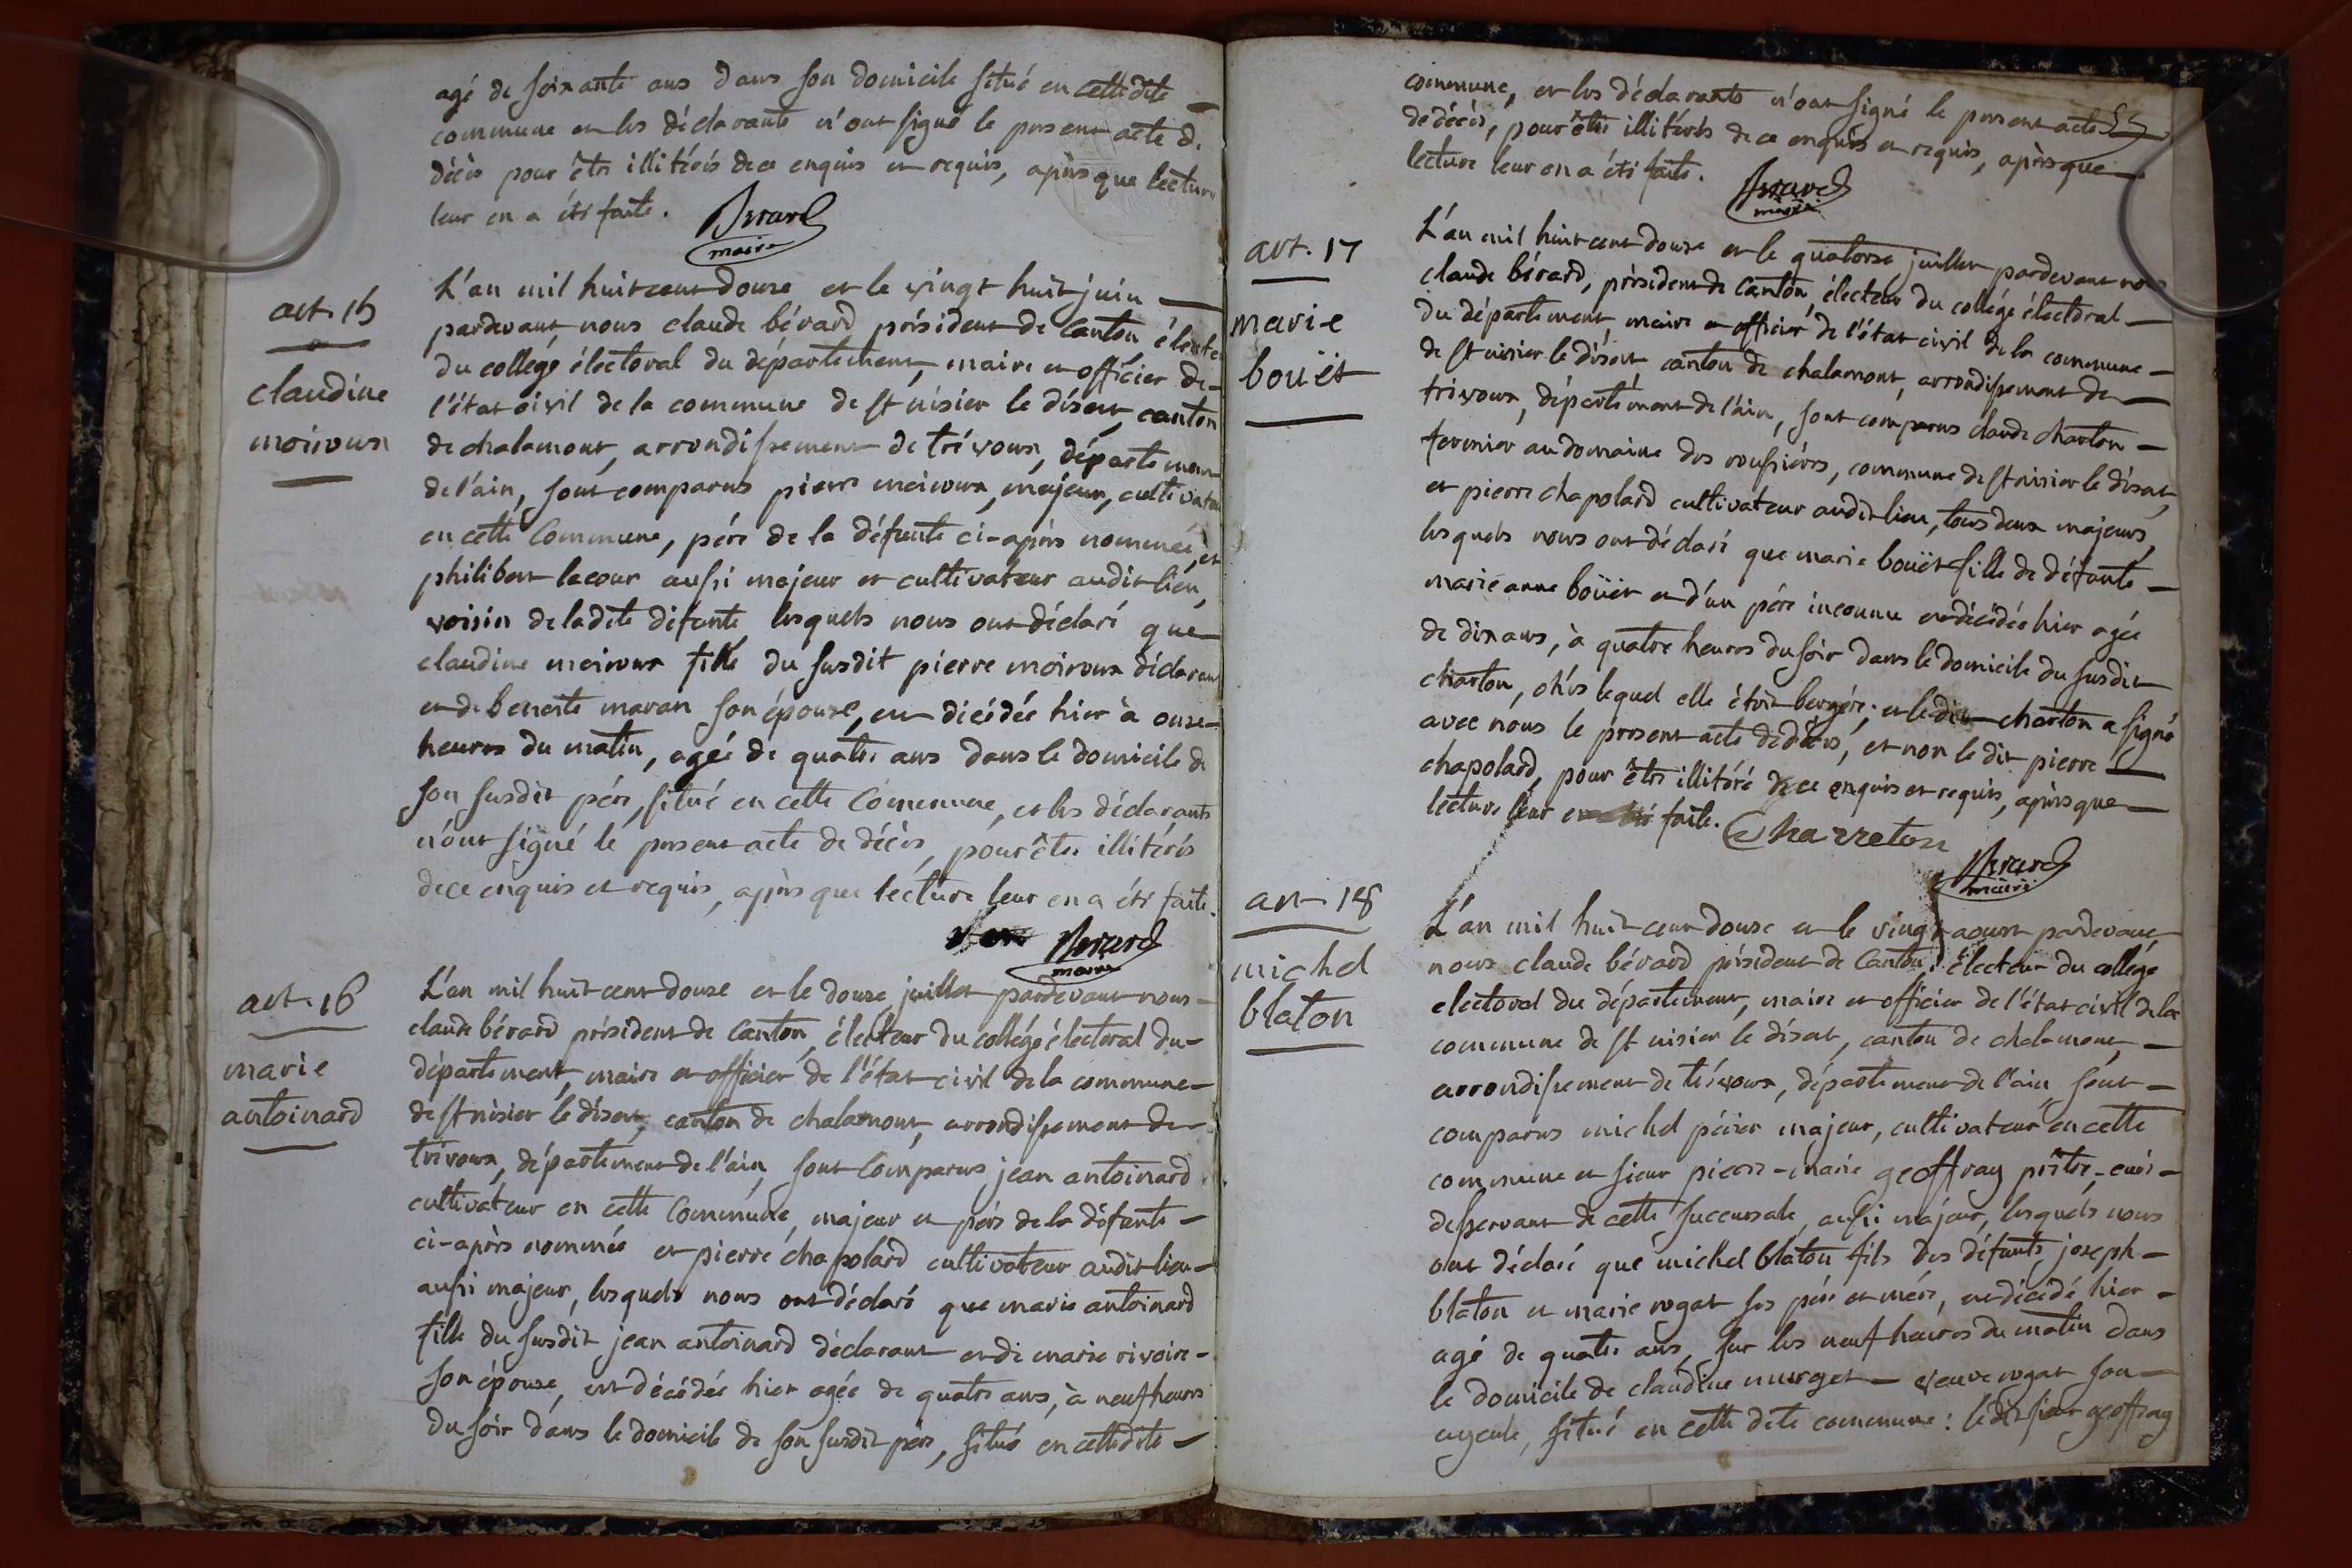 agé de soixante ans dans son domicile situé en cette dite
commune et les déclarants n'ont signé le present acte de
décès pour être illitérés de ce enquis et requis, après que lecture
leur en a été faite. Berard
maire
art. 15
claudine
moiroux
L'an mil huit cent douze et le vingt huit juin
pardevant nous claude bérard président de Canton, électeur
du collégé électoral du département, maire et officier de
l'état civil de la commune de st nisier le désert, canton
de chalamont, arrondissement de trévoux, département
de l'ain, sont comparus pierre moiroux, majeur, cultivateur
en cette Commune, pére de la défunte ci-après nommée, et
philibert lacour aussi majeur et cultivateur audit lieu,
voisin de la dite défunte, lesquels nous ont déclaré que
claudine moiroux fille du susdit pierre moiroux déclarant
et de benoite maran son épouse, est décédée hier à onze
heures du matin, agée de quatre ans dans le domicile de
son susdit pére, situé en cette Commune, et les déclarants
n'ont signé le present acte de décès, pour être illitérés
de ce enquis et requis, après que lecture leur en a été faite.
Berard
maire
art. 16
marie
antoinard
L'an mil huit cent douze et le douze juillet pardevant nous
claude bérard président de Canton, électeur du collégé électoral du
département, maire et officier de l'état civil de la commune
de st nisier le désert, canton de chalamont, arrondissement de
trévoux, département de l'ain, sont Comparus jean antoinard
cultivateur en cette Commune, majeur et pére de la défunte
ci-après nommée et pierre chapolard cultivateur audit lieu
aussi majeur, lesquels nous ont déclaré que marie antoinard
fille du susdit jean antoinard déclarant et de marie rivoire
son épouse, est décédée hier agée de quatre ans, à neuf heures
du soir dans le domicile de son susdit pére, situé en cette dite
commune, et les déclarants n'ont signé le present acte
de décès, pour être illitérés de ce enquis et requis, après que
lecture leur en a été faite. Berard
maire
art. 17
marie
bouët
L'an mil huit cent douze et le quatorze juillet pardevant nous
claude bérard, président de Canton, électeur du collégé électoral
du département, maire et officier de l'état civil de la commune
de st nisier le désert, canton de chalamont, arrondissement de
trévoux, département de l'ain, sont comparus claude charton
fermier au domaine des roussiéres, commune de st nisier le désert,
et pierre chapolard cultivateur audit lieu, tous deux majeurs,
lesquels nous ont déclaré que marie bouët fille de défunte
marie anne boüet et d'un pére inconnu est décédée hier agée
de dix ans, à quatre heures du soir dans le domicile du susdit
charton, chés lequel elle étoit bergére; et le dit charton a signé
avec nous le present acte de décès, et non le dit pierre
chapolard, pour être illitéré de ce enquis et requis, après que
lecture leur en a été faite. Charreton
Berard
maire
art. 18
michel
blaton
L'an mil huit cent douze et le vingt aoust pardevant
nous claude bérard président de Canton, électeur du collégé
electoral du département, maire et officier de l'état civil de la
commune de st nisier le désert, canton de chalamont,
arrondissement de trévoux, département de l'ain, sont
comparus michel périer majeur, cultivateur en cette
commune et sieur pierre-marie geoffray prêtre-curé-
desservant de cette succursale, aussi majeur, lesquels nous
ont déclaré que michel blaton fils des défunts joseph
blaton et marie rogat ses pére et mére, est décédé hier
agé de quatre ans, sur les neuf heures du matin dans
le domicile de claudine murget veuve rogat son
ayeule, situé en cette dite commune: le dit sieur geoffray